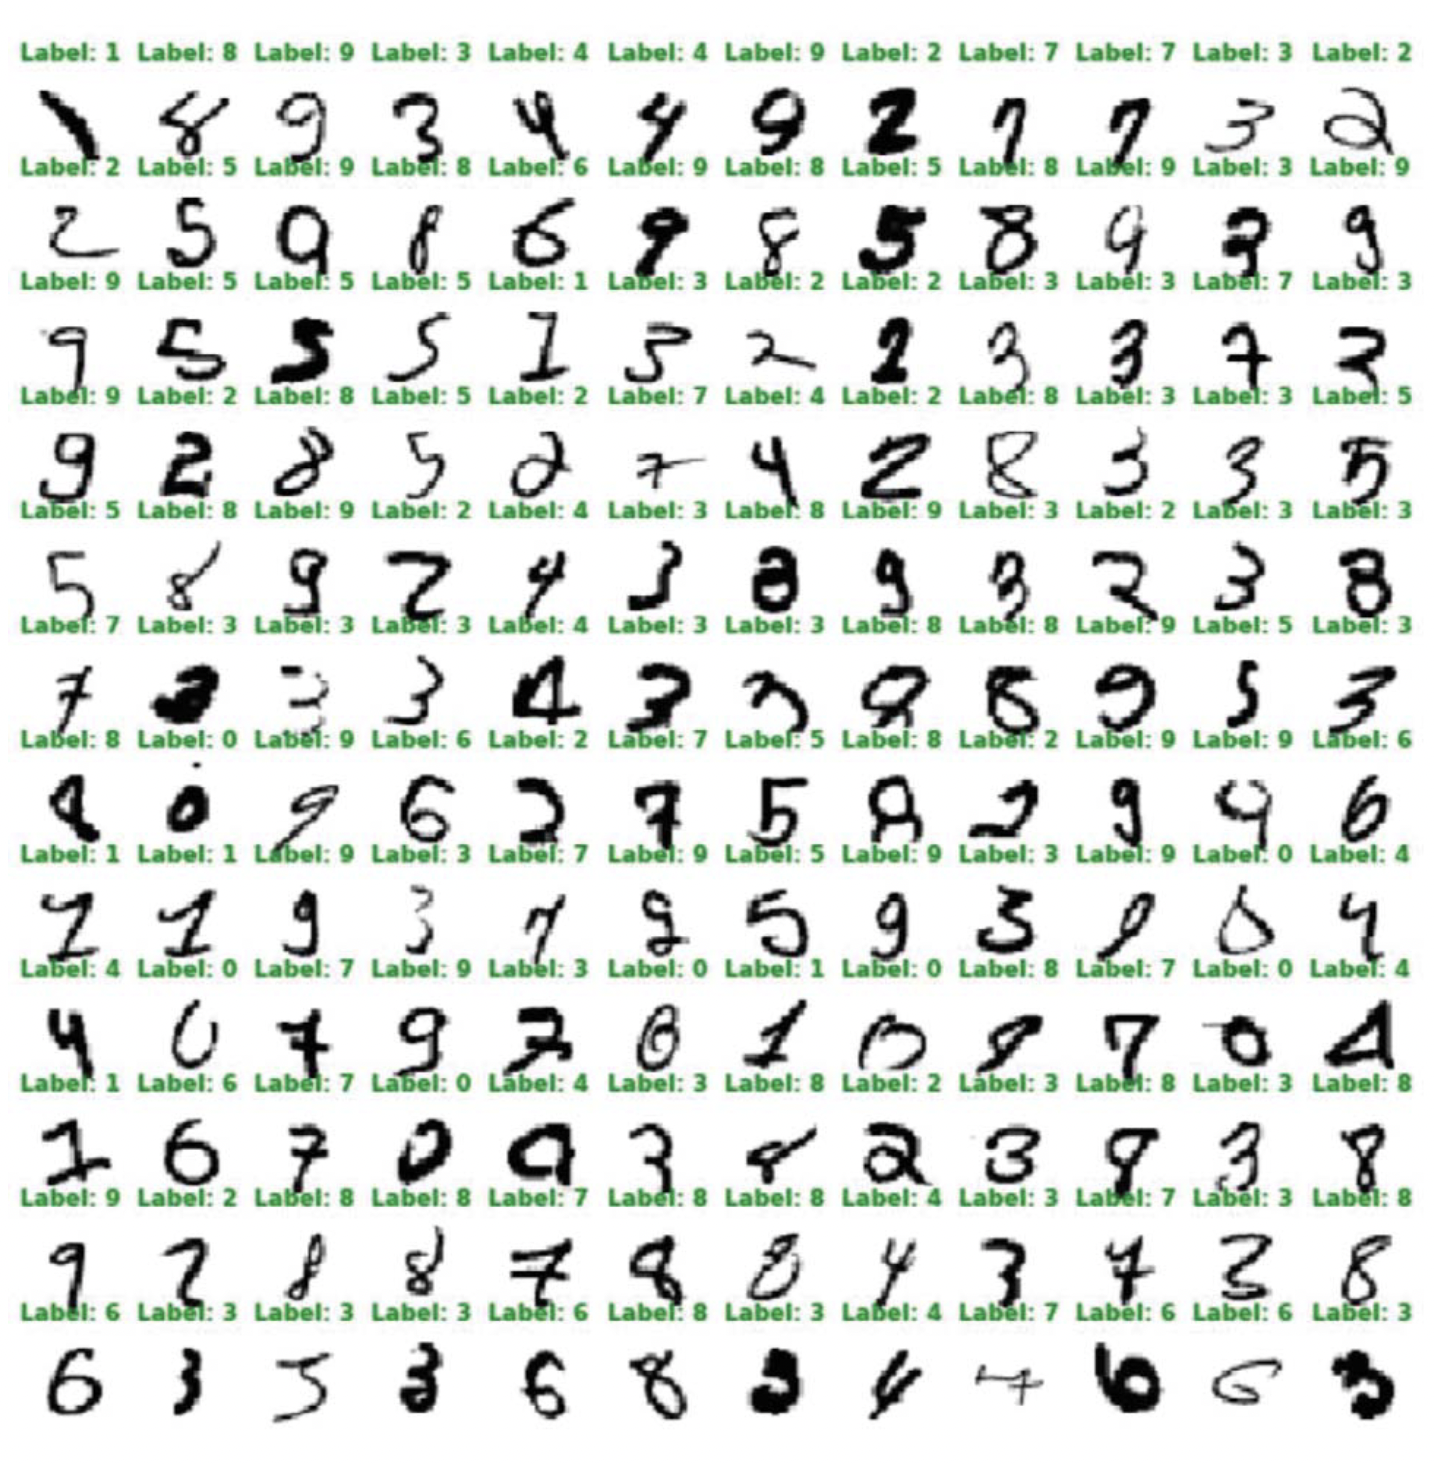 Label: 1 Label: 8 Label: 9 Label: 3 Label: 4 Label: 4 Label: 9 Label: 2 Label: 7 Label: 7 Label: 3 Label: 2
1 8 9 3 4 4 9 2 7 7 3 2
Label: 2 Label: 5 Label: 9 Label: 8 Label: 6 Label: 9 Label: 8 Label: 5 Label: 8 Label: 9 Label: 3 Label: 9
2 5 9 8 6 9 8 5 8 9 3 9
Label: 9 Label: 5 Label: 5 Label: 5 Label: 1 Label: 3 Label: 2 Label: 2 Label: 3 Label: 3 Label: 7 Label: 3
9 5 5 5 1 3 2 2 3 3 7 3
Label: 9 Label: 2 Label: 8 Label: 5 Label: 2 Label: 7 Label: 4 Label: 2 Label: 8 Label: 3 Label: 3 Label: 5
9 2 8 5 2 7 4 2 8 3 3 5
Label: 5 Label: 8 Label: 9 Label: 2 Label: 4 Label: 3 Label: 8 Label: 9 Label: 3 Label: 2 Label: 3 Label: 3
5 8 9 2 4 3 8 9 3 2 3 3
Label: 7 Label: 3 Label: 3 Label: 3 Label: 4 Label: 3 Label: 3 Label: 8 Label: 8 Label: 9 Label: 5 Label: 3
7 3 3 3 4 3 3 8 8 9 5 3
Label: 8 Label: 0 Label: 9 Label: 6 Label: 2 Label: 7 Label: 5 Label: 8 Label: 2 Label: 9 Label: 9 Label: 6
8 0 9 6 2 7 5 8 2 9 9 6
Label: 1 Label: 1 Label: 9 Label: 3 Label: 7 Label: 9 Label: 5 Label: 9 Label: 3 Label: 9 Label: 0 Label: 4
1 1 9 3 7 9 5 9 3 9 0 4
Label: 4 Label: 0 Label: 7 Label: 9 Label: 3 Label: 0 Label: 1 Label: 0 Label: 8 Label: 7 Label: 0 Label: 4
4 0 7 9 3 0 1 0 8 7 0 4
Label: 1 Label: 6 Label: 7 Label: 0 Label: 4 Label: 3 Label: 8 Label: 2 Label: 3 Label: 8 Label: 3 Label: 8
1 6 7 0 4 3 8 2 3 8 3 8
Label: 9 Label: 2 Label: 8 Label: 8 Label: 7 Label: 8 Label: 8 Label: 4 Label: 3 Label: 7 Label: 3 Label: 8
9 2 8 8 7 8 8 4 3 7 3 8
Label: 6 Label: 3 Label: 3 Label: 3 Label: 6 Label: 8 Label: 3 Label: 4 Label: 7 Label: 6 Label: 6 Label: 3
6 3 3 3 6 8 3 4 7 6 6 3